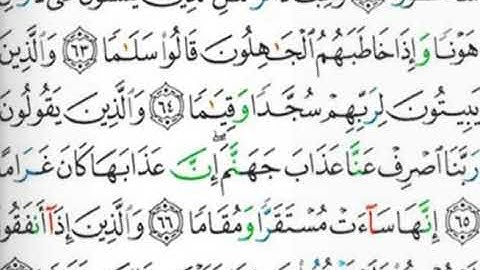 هَوْنًا وَإِذَا خَاطَبَهُمُ الْجَٰهِلُونَ قَالُوا۟ سَلَٰمًا ٦٣ وَالَّذِينَ
يَبِيتُونَ لِرَبِّهِمْ سُجَّدًا وَقِيَٰمًا ٦٤ وَالَّذِينَ يَقُولُونَ
رَبَّنَا اصْرِفْ عَنَّا عَذَابَ جَهَنَّمَ ۖ إِنَّ عَذَابَهَا كَانَ غَرَامًا
٦٥ إِنَّهَا سَآءَتْ مُسْتَقَرًّا وَمُقَامًا ٦٦ وَالَّذِينَ إِذَآ أَنفَقُوا